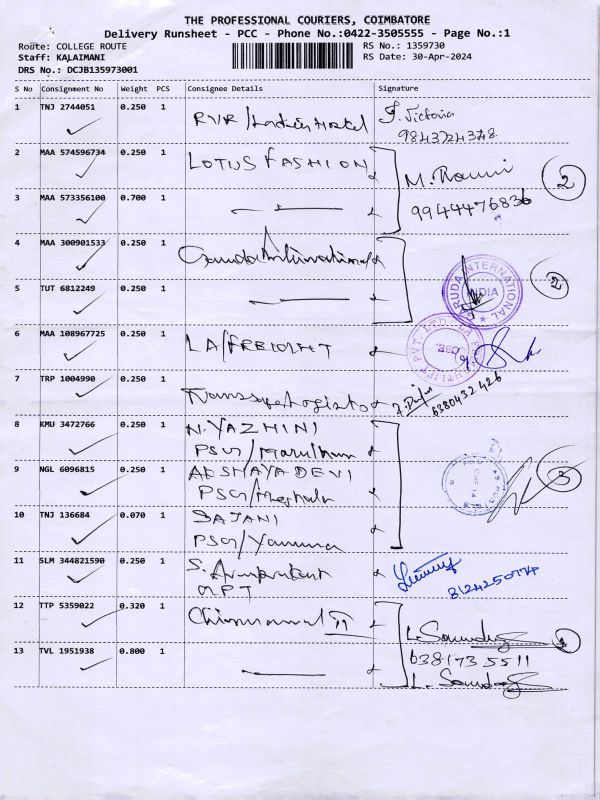 THE PROFESSIONAL COURIERS, COIMBATORE
Delivery Runsheet - PCC - Phone No.:0422-3505555 - Page No.:1
Route: COLLEGE ROUTE RS No.: 1359730
Staff: KALAIMANI RS Date: 30-Apr-2024
DRS No.: DCJB135973001
S No Consignment No Weight PCS Consignee Details Signature
1 TNJ 2744051 0.250 1 RVR/Ladies Hostel J. Victoria
9843724378
2 MAA 574596734 0.250 1 LOTUS FASHION M. Rammi 2
3 MAA 573356100 0.700 1 9944476836
4 MAA 300901533 0.250 1 Garuda International GARUDA INTERNATIONAL INDIA
5 TUT 6812249 0.250 1 2
6 MAA 108967725 0.250 1 LA/FREIGHT PVT. LTD. CBE.
7 TRP 1004990 0.250 1 Logistics 6380432426
8 KMU 3472766 0.250 1 N. YAZHINI
PSG/
9 NGL 6096815 0.250 1 AKSHAYA DEVI 3
PSG/
10 TNJ 136684 0.070 1 SAJANI
PSG/Yamuna
11 SLM 344821590 0.250 1 S.
8124250774
12 TTP 5359022 0.320 1 II L.
13 TVL 1951938 0.800 1 6381735511
L.